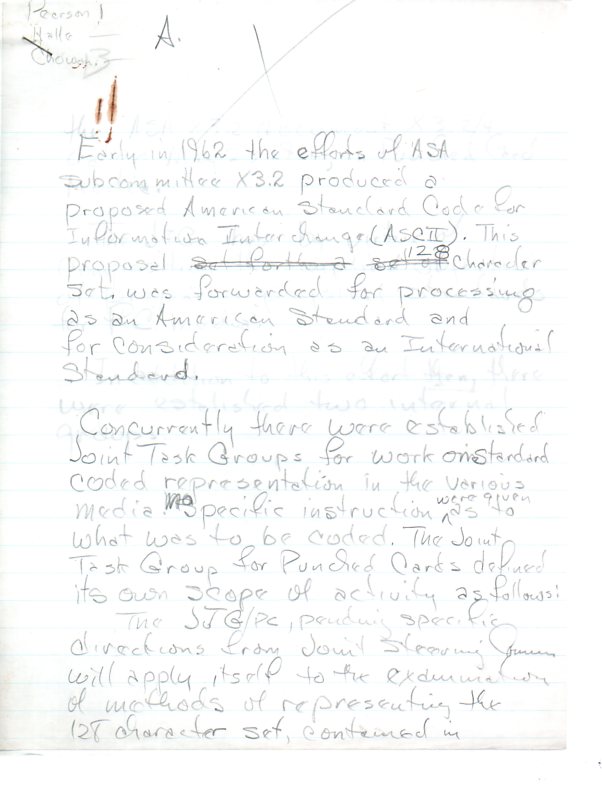 Pearson 1
Halle —
Chowan. 3
A.
Early in 1962 the efforts of ASA
Subcommittee X3.2 produced a
proposed American Standard Code for
Information Interchange (ASCII). This
proposal set forth a set of 128 Character
Set, was forwarded for processing
as an American Standard and
for consideration as an International
Standard.
Concurrently there were established
Joint Task Groups for work on standard
coded representation in the various
media. No specific instruction were given as to
what was to be coded. The Joint
Task Group for Punched Cards defined
its own scope of activity as follows:
The JTG/PC, pending specific
directions from Joint Steering
will apply itself to the examination
of methods of representing the
128 character set, contained in